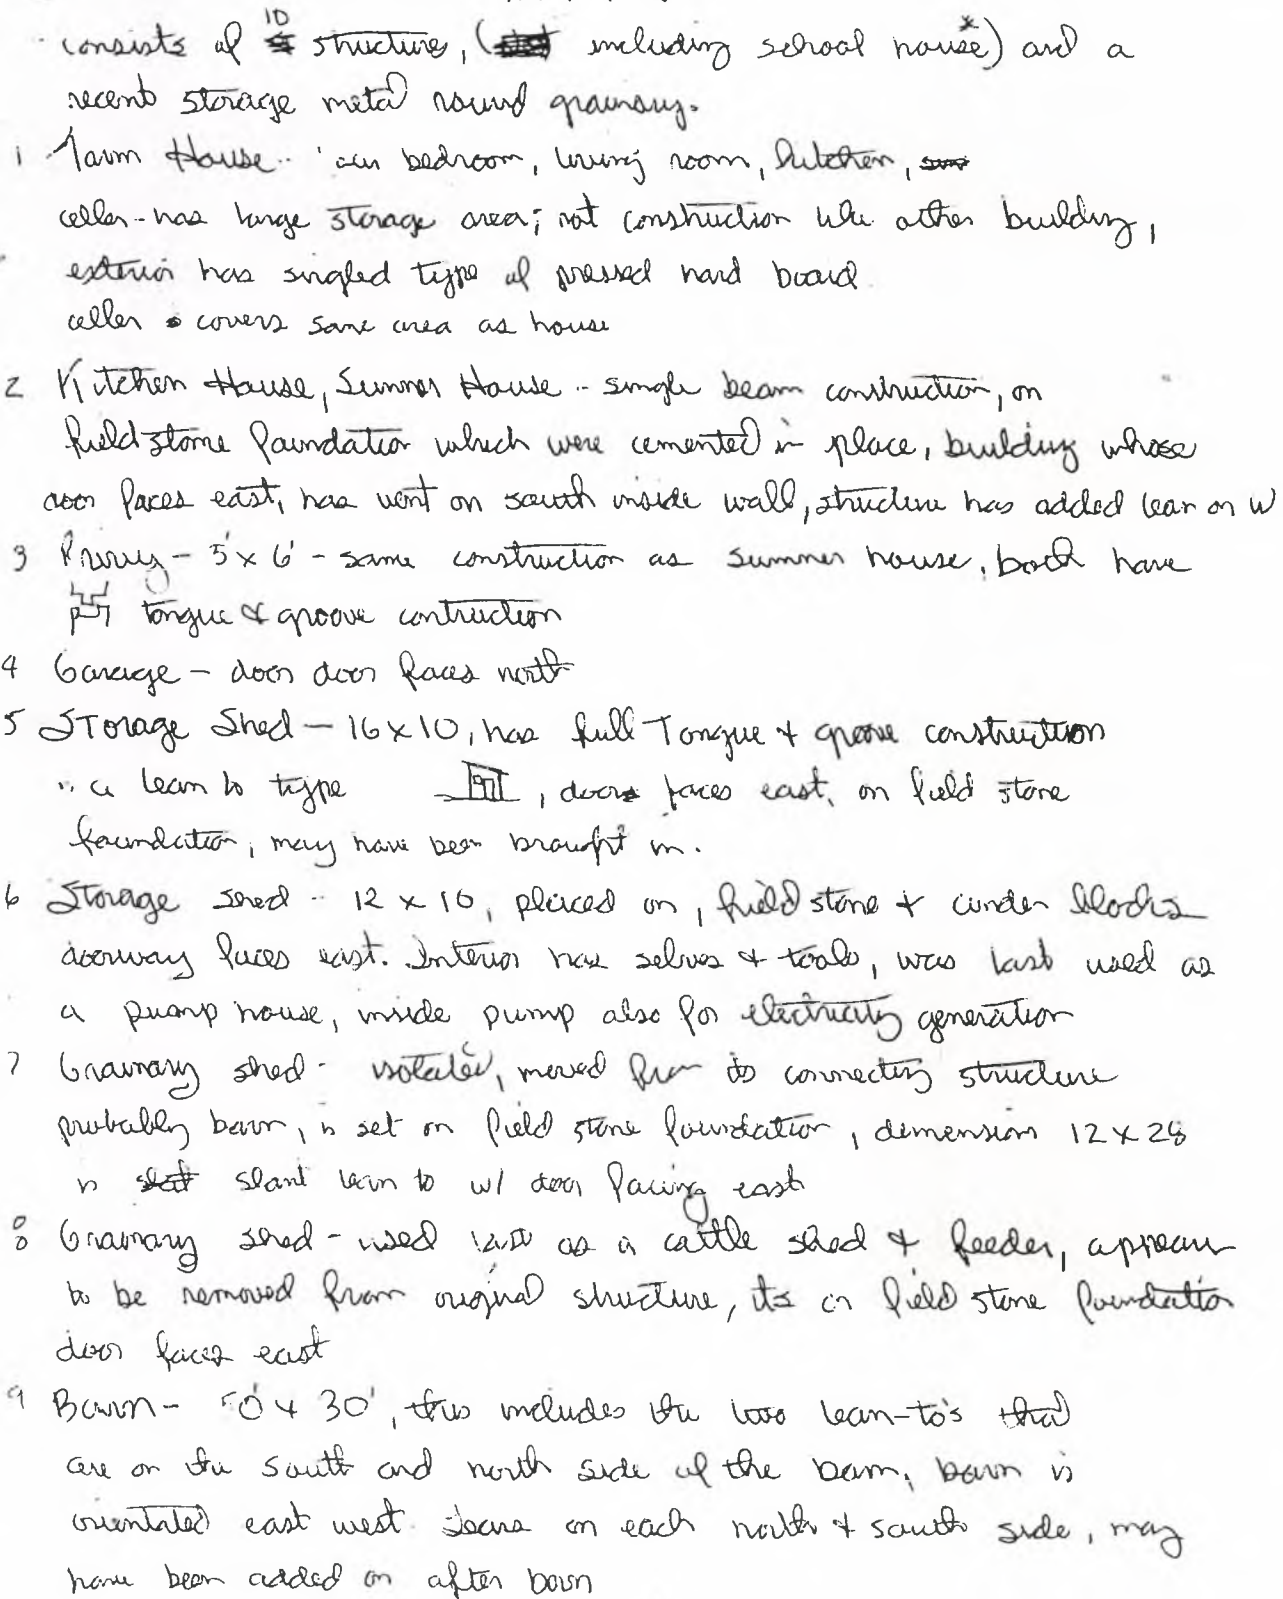 consists of 10 structures, (including school house*) and a
recent storage metal round grainary.
1 Farm House -- bedroom, living room, kitchen,
celler - has large storage area; not construction like other building,
exterior has singled type of pressed hard board
celler covers same area as house
2 Kitchen House, Summer House -- single beam construction, on
field stone foundation which were cemented in place, building whose
door faces east, has vent on south inside wall, structure has added lean on W
3 Privy - 5' x 6' - same construction as summer house, both have
tongue & groove contruction
4 Garage - door door faces north
5 Storage Shed - 16 x 10, has full Tongue & groove construction
.. a lean to type , door faces east, on field stone
foundation, may have been brought in.
6 Storage shed -- 12 x 10, placed on, field stone & cinder blocks
doorway faces east. Interior has selves & tools, was last used as
a pump house, inside pump also for electricity generation
7 Grainary shed - isolated, moved from its connecting structure
probably barn, is set on field stone foundation, dimension 12 x 28
is slant lean to w/ door facing east
8 Grainary shed - used last as a cattle shed & feeder, appears
to be removed from original structure, its on field stone foundation
door faces east
9 Barn - 50' x 30', this includes the two lean-to's that
are on the south and north side of the barn, barn is
orientated east west. leans on each north & south side, may
have been added on after barn